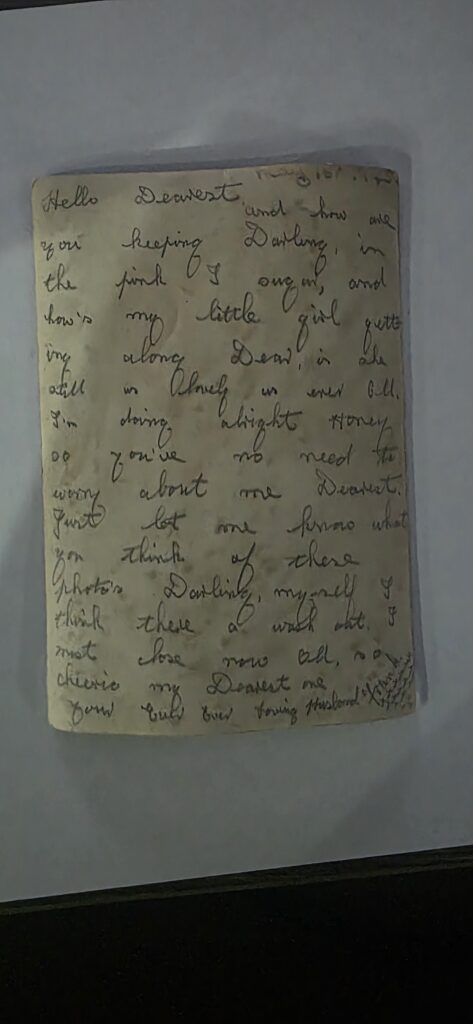 May 15th
Hello Dearest, and how are
you keeping Darling, in
the pink I sugar, and
how's my little girl gett-
ing along Dear, is she
still as lovely as ever Ell.
I'm doing alright Honey
so you've no need to
worry about me Dearest.
Just let me know what
you think of these
photo's Darling, myself I
think there a wash out. I
must close now Ell, so
cheerio my Dearest one
Your Ever Loving Husband